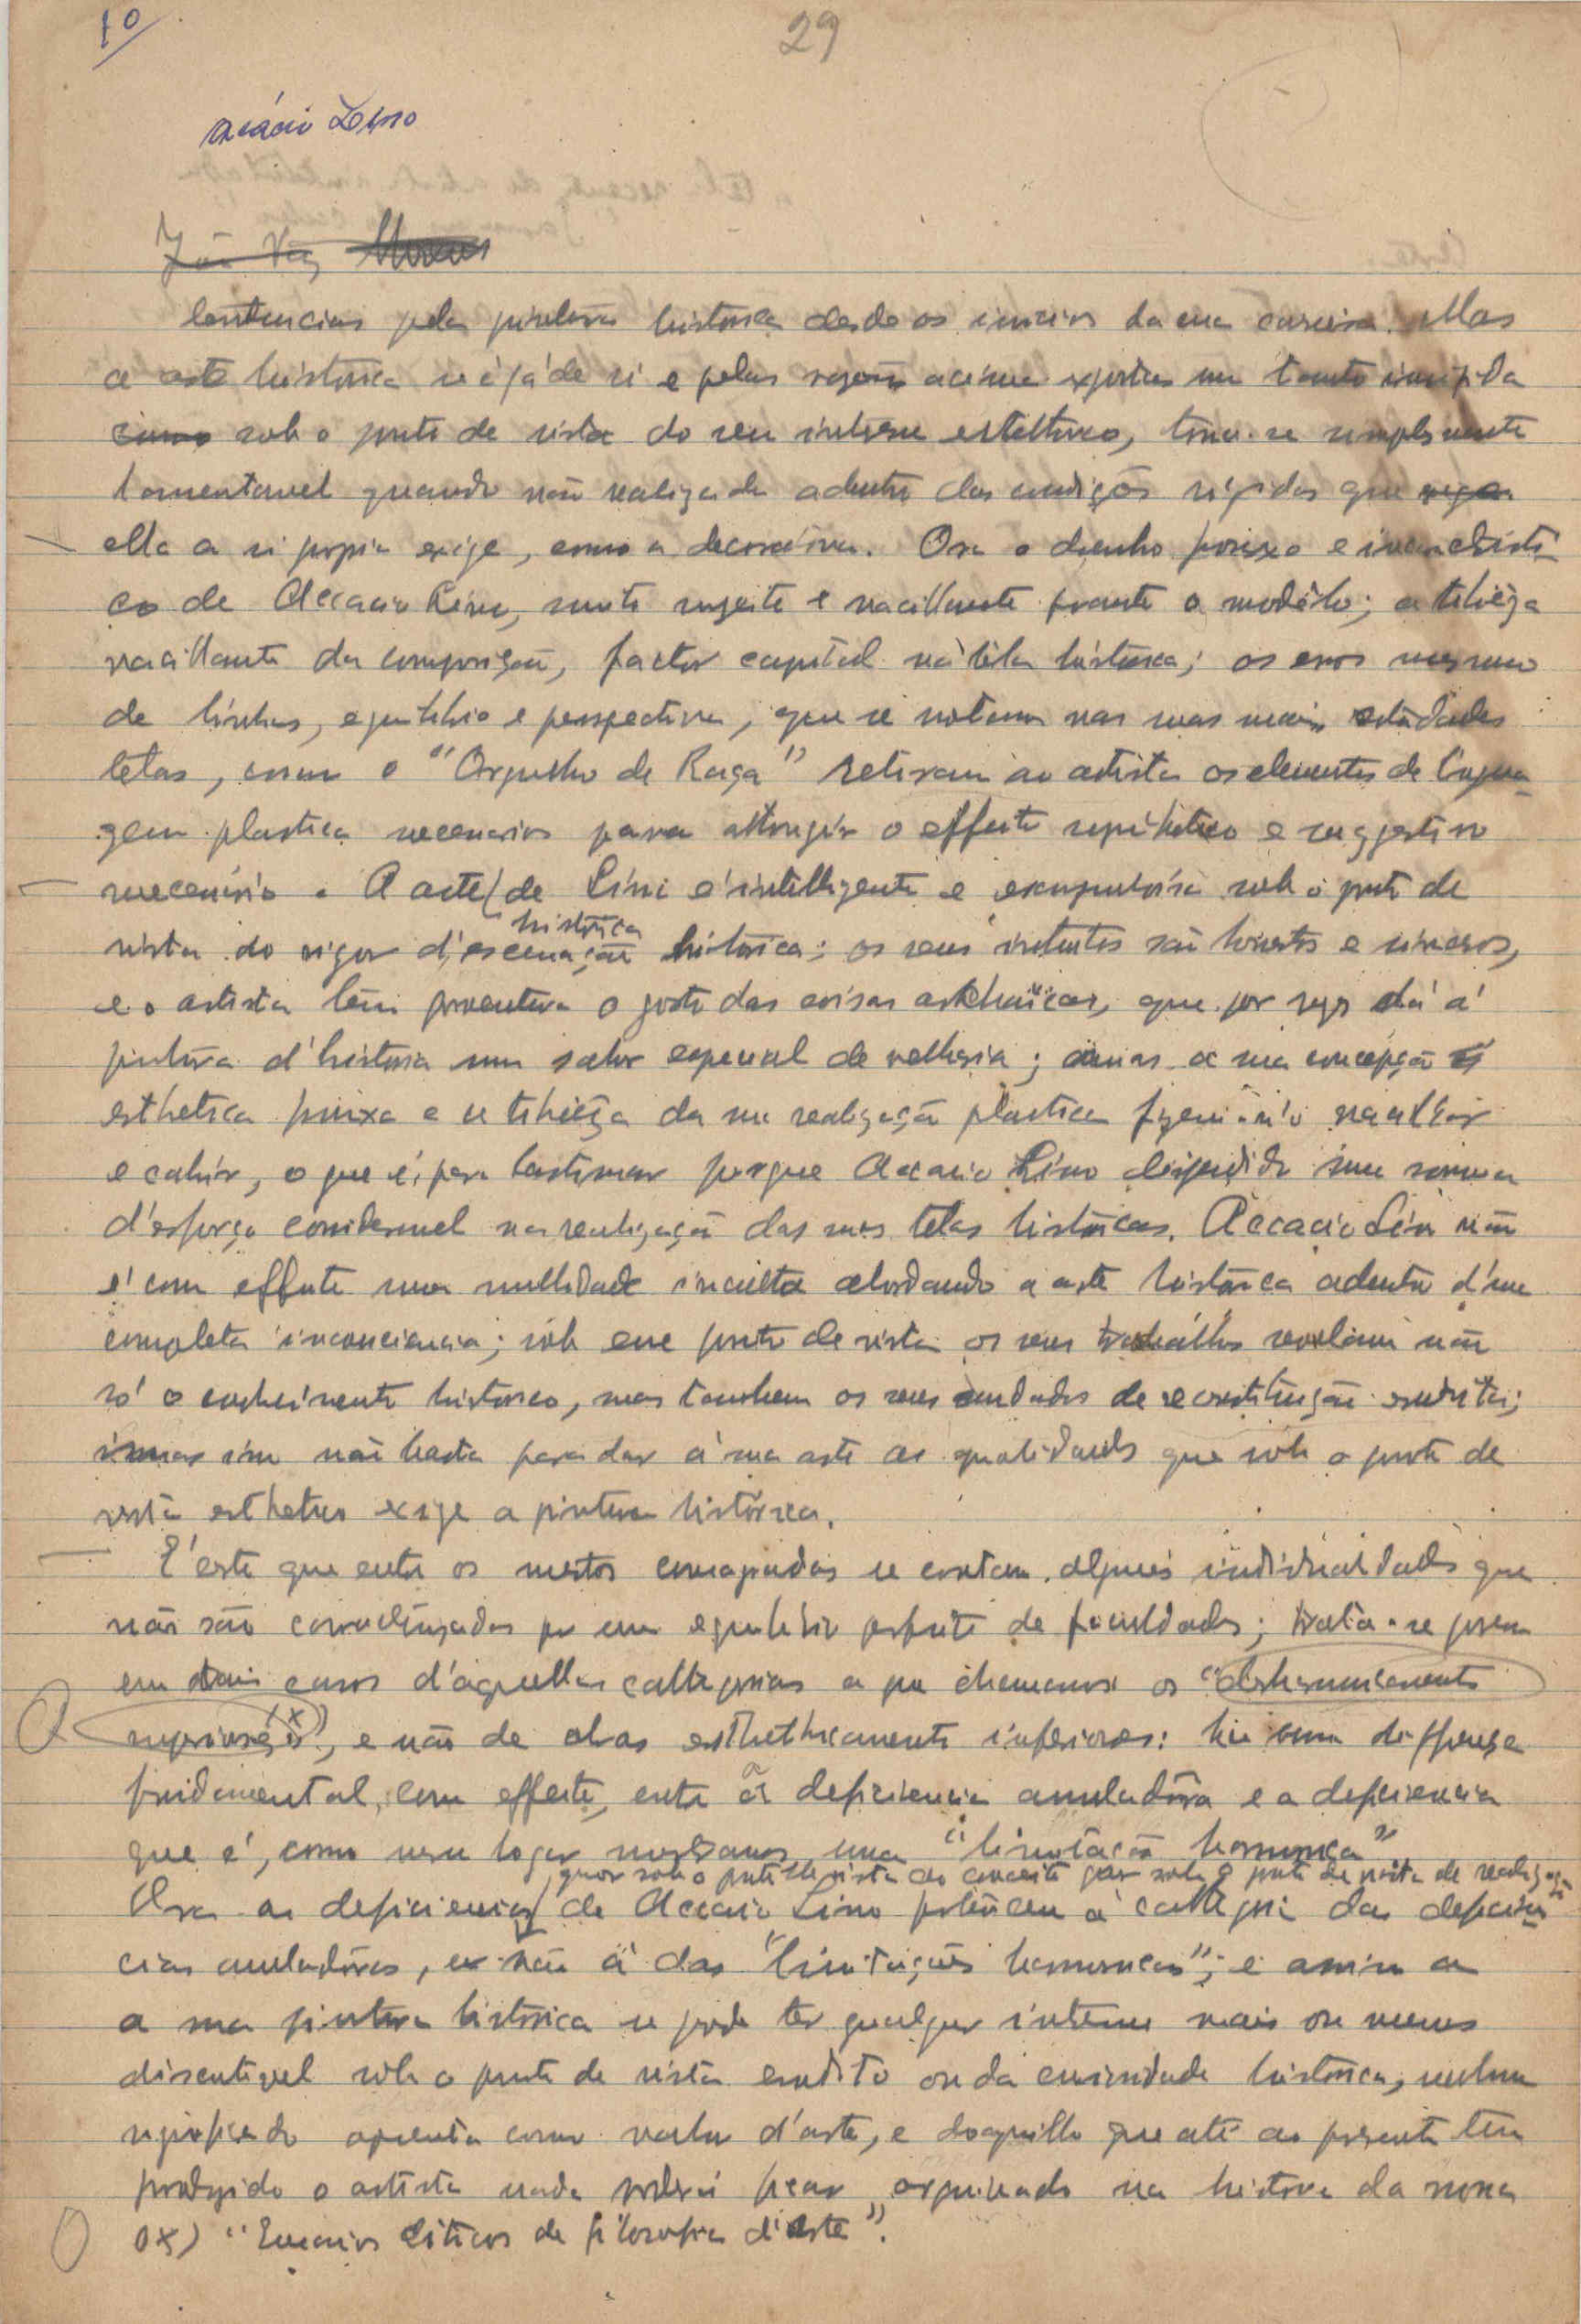 10
29
Acácio Lino
João Vaz
tendencias pela pintura historica desde os inicios da sua carreira. Mas
a arte historica se é já de si e pelas razões acima expostas um tanto insipida
sob o ponto de vista do seu interesse esthetico, torna-se simplesmente
lamentavel quando não realizada adentro das condições rigidas que
ella a si propria exige, como a decorativa. Ora o desenho frouxo e
co de Accacio Lino, muito sujeito e vacillante perante o modêlo; a tibiêza
vacillante da composição, factor capital na téla histórica; os erros mesmo
de linhas, equilibrio e perspectiva, que se notam nas suas mais estudadas
telas, como o "Orgulho de Raça" retiram ao artista os elementos de lingua-
gem plastica necessarios para attingir o effeito sympathico e suggestivo
necessário. A arte de Lino é intelligente e escrupulosa sob o ponto de
historica
vista do rigor d'escenação histórica: os seus intentos são honestos e sinceros,
e o artista têm porventura o gosto das coisas archaicas, que por vezes dá á
pintura d'historia um sabor especial de velharia; mas a sua concepção
esthetica frouxa e a tibiêza da sua realização plastica fazem-n'o vacillar
e cahir, o que é para lastimar porque Accacio Lino dispendido uma somma
d'esforço consideravel na realização das suas telas históricas. Accacio Lino não
é com effeito uma nullidade inculta abordando a arte histórica adentro d'uma
completa inconsciencia; sob esse ponto de vista os seus trabalhos revelam não
só o conhecimento historico, mas tambem os seus cuidados de reconstituição erudita;
mas isso não basta para dar á sua arte as qualidades que sob o ponto de
vista esthetico exige a pintura histórica.
É certo que entre os mestres consagrados se contam alguns individualidades que
não são caracterizadas por um equilibrio perfeito de faculdades; trata-se porem
em tais casos d'aquellas cathegorias a que chamamos os "desharmonicamente
superiores" (x), e não de obras estheticamente inferiores: ha uma differença
fundamental, com effeito, entre a deficiencia annuladôra e a deficiencia
que é, como nesse logar mostramos, uma "limitação harmonica"
quer sob o ponto de vista do conceito quer sob o ponto de vista de realização
Ora as deficiencias de Accacio Lino pertencem á cathegoria das deficien-
cias annuladôras, e não á das "limitações harmonicas"; e assim a
a sua pintura histórica se pode ter qualquer interesse mais ou menos
discutivel sob o ponto de vista erudito ou da curiosidade histórica, nenhum
significado apresenta como valor d'arte, e daquillo que até ao presente tem
produzido o artista nada poderá ficar archivado na historia da nossa
(x) "Ensaios Criticos de filosofia d'Arte".